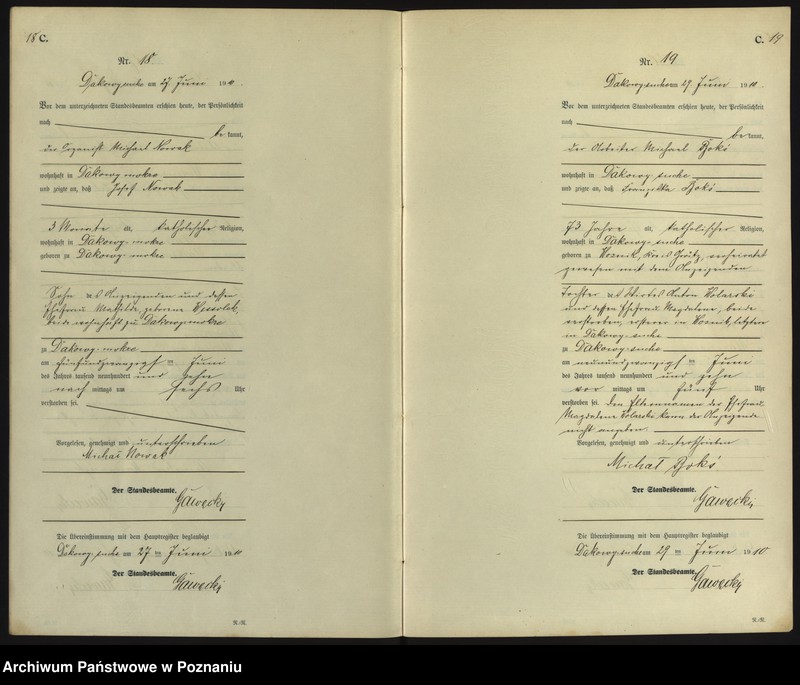 18 C.
Nr. 18
Dakowy suche am 27 Juni 1910.
Vor dem unterzeichneten Standesbeamten erschien heute, der Persönlichkeit
nach
be kannt,
der Organist Michael Nowak
wohnhaft in Dakowy mokre
und zeigte an, daß Josef Nowak
3 Monate alt, katholischer Religion,
wohnhaft in Dakowy mokre
geboren zu Dakowy mokre
Sohn des Anzeigenden und dessen
Ehefrau Matilde geborene
beide wohnhaft zu Dakowy mokre
zu Dakowy mokre
am fünfundzwanzigsten Juni
des Jahres tausend neunhundert und zehn
nach mittags um sechs Uhr
verstorben sei.
Vorgelesen, genehmigt und unterschrieben
Michał Nowak
Der Standesbeamte.
Gawecki
Die Übereinstimmung mit dem Hauptregister beglaubigt
Dakowy suche am 27 ten Juni 1910
Der Standesbeamte.
Gawecki
R.-R.
C. 19
Nr. 19
Dakowy suche am 29 Juni 1910.
Vor dem unterzeichneten Standesbeamten erschien heute, der Persönlichkeit
nach
be kannt,
der Arbeiter Michael
wohnhaft in Dakowy suche
und zeigte an, daß
73 Jahre alt, katholischer Religion,
wohnhaft in Dakowy suche
geboren zu Woznik, Kreis Grätz, verheiratet
gewesen mit dem Anzeigenden
Tochter des Wirtes Anton
und dessen Ehefrau Magdalene, beide
verstorben, ersterer in Woznik, letztere
in Dakowy suche
zu Dakowy suche
am neunundzwanzigsten Juni
des Jahres tausend neunhundert und zehn
vor mittags um fünf Uhr
verstorben sei. Den Elternnamen der Ehefrau
Magdalene kann der Anzeigende
nicht angeben.
Vorgelesen, genehmigt und unterschrieben
Michał
Der Standesbeamte.
Gawecki
Die Übereinstimmung mit dem Hauptregister beglaubigt
Dakowy suche am 29 ten Juni 1910
Der Standesbeamte.
Gawecki
R.-R.
Archiwum Państwowe w Poznaniu